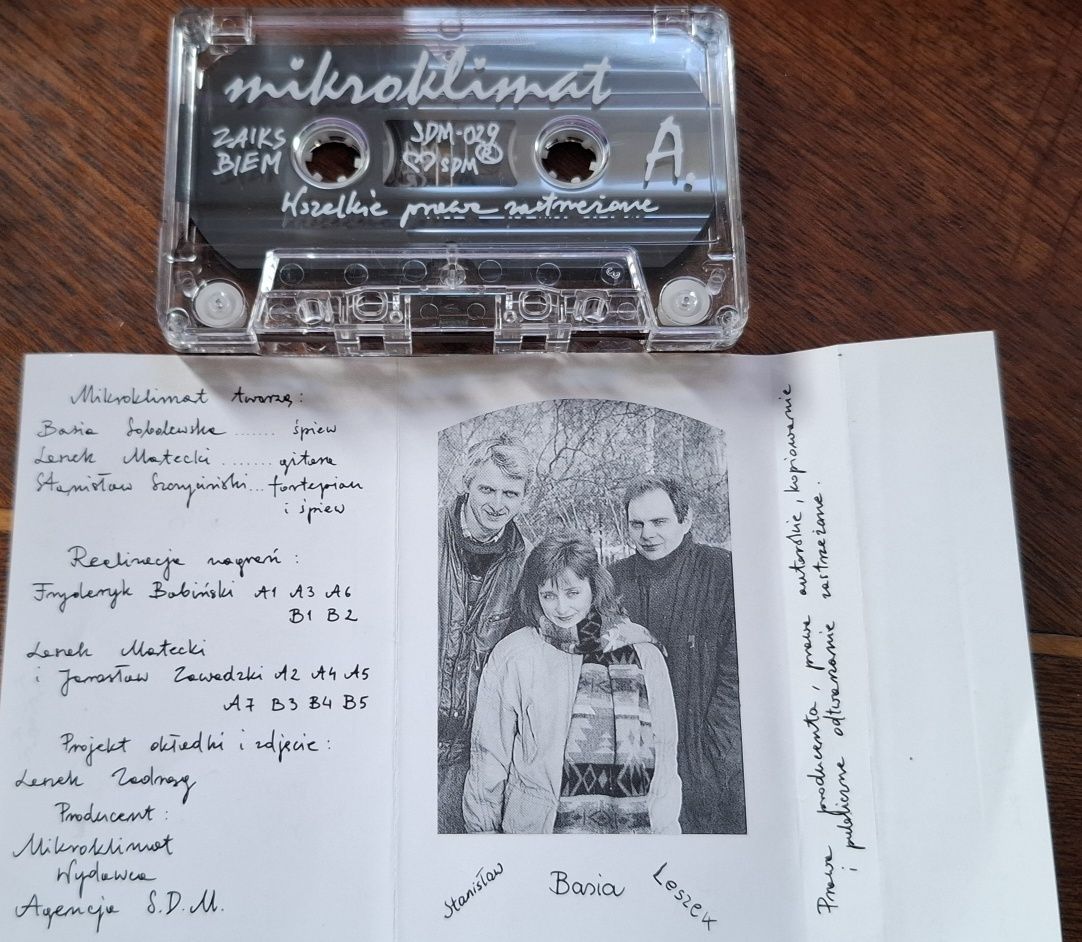 mikroklimat
ZAIKS
BIEM
SDM-029
SDM®
A.
Wszelkie prawa zastrzeżone
Mikroklimat tworzą:
Basia Sobolewska ....... śpiew
Leszek Matecki ........ gitara
Stanisław Szczyciński... fortepian
i śpiew
Realizacja nagrań:
Fryderyk Babiński A1 A3 A6
B1 B2
Leszek Matecki
i Jarosław Zawadzki A2 A4 A5
A7 B3 B4 B5
Projekt okładki i zdjęcie:
Leszek
Producent:
Mikroklimat
Wydawca
Agencja S.D.M.
Stanisław
Basia
Leszek
Prawa producenta, prawa autorskie, kopiowanie
i publiczne odtwarzanie zastrzeżone.